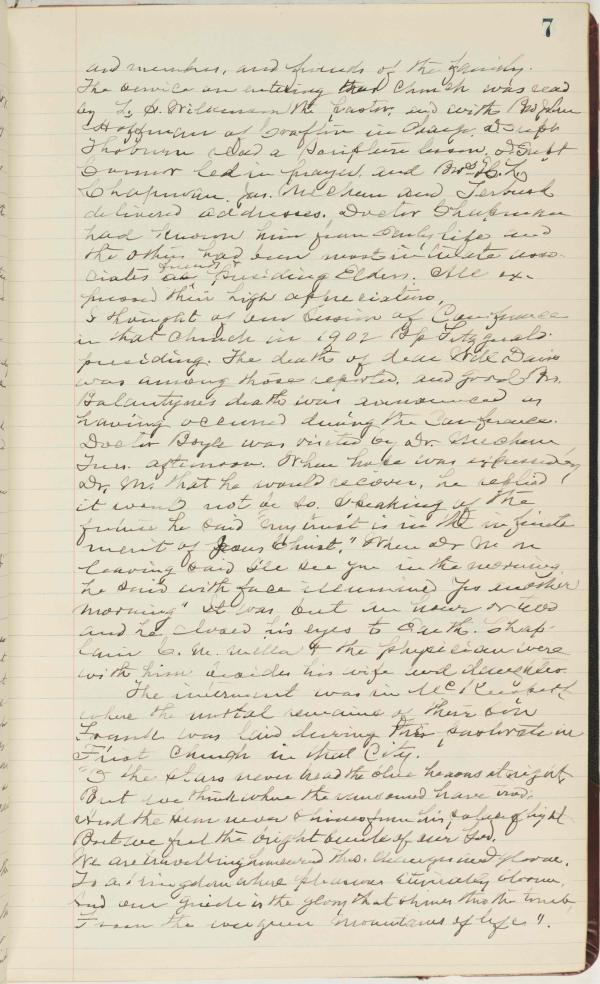 7
and member, and friends of the family.
The service on entering that Church was read
by L. S. Wilkinson the Pastor, and with Bro John
Hoffman of Crafton in charge. D Supt
Thoburn read a Scripture lesson, D Supt
Connor led in prayer, and Bros H. L.
Chapman, Jas. Mechem and Terbush
delivered addresses. Doctor Chapman
had known him from early life and
the others had been most intimate asso-
ciates as friends Presiding Elders. All ex-
pressed their high appreciation.
I thought of our Session of Conference
in that Church in 1902 Bp Fitzgerald
presiding. The death of dear Will Davis
was among those reported, and good Mrs.
Balantyne's death was announced as
having occurred during the Conference.
Doctor Boyle was visited by Dr. Mechem
Tues. afternoon. When hope was expressed by
Dr. M. that he would recover, he replied
it would not be so. Speaking of the
future he said "my trust is in the infinite
merit of Jesus Christ." When Dr M on
leaving said I'll see you in the morning
he said with face illumined "yes another
morning" It was but an hour or two
and he closed his eyes to Earth. Chap-
lain C. M. Miller & the physician were
with him besides his wife and daughter.
The interment was in McKeesport
where the mortal remains of their son
Frank was laid during this pastorate in
First Church in that City.
"O the stars never tread the blue heavens at night,
But we think where the ransomed have trod,
And the sun never shines from his palace of light
But we feel the bright smile of our God.
We are travelling homeward thro. changes and gloom,
To a kingdom where pleasures eternally bloom,
And our guide is the glory that shines thro the tomb,
From the evergreen mountains of life".